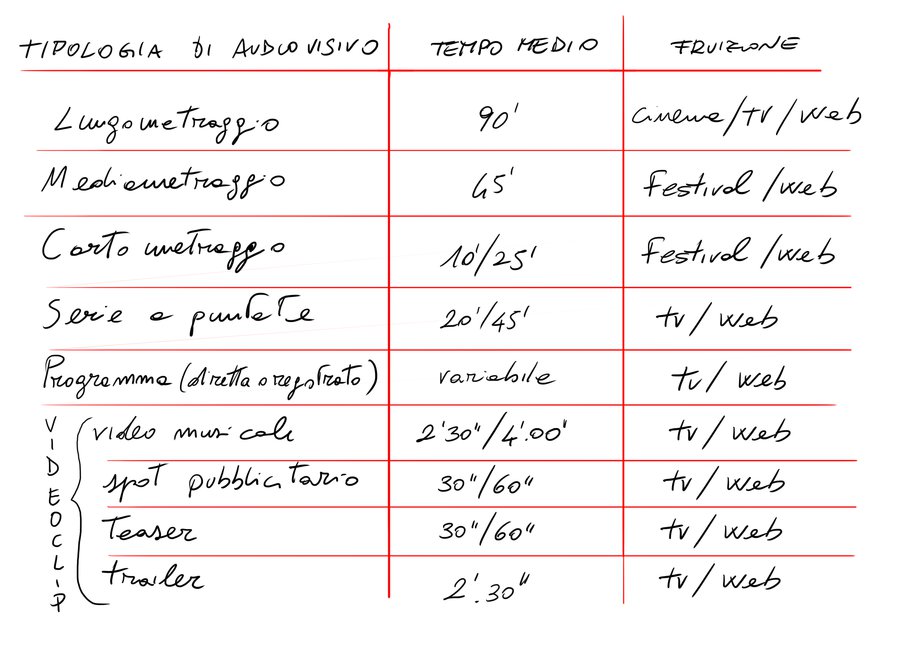 TIPOLOGIA DI AUDIOVISIVO TEMPO MEDIO FRUIZIONE
Lungometraggio 90' cinema/TV/web
Mediometraggio 45' Festival/web
Corto metraggio 10'/25' Festival/web
Serie a puntate 20'/45' tv/web
Programma (diretta o registrato) variabile tv/web
VIDEOCLIP
video musicale 2'30"/4'.00' tv/web
spot pubblicitario 30"/60" tv/web
Teaser 30"/60" tv/web
trailer 2'.30" tv/web